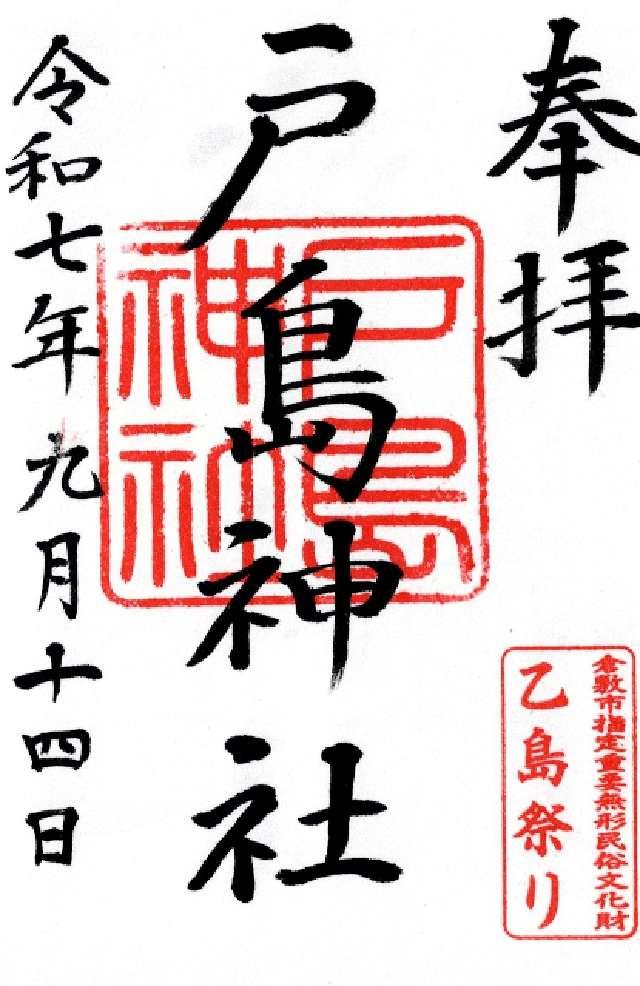 奉拝
倉敷市指定重要無形民俗文化財
乙島祭り
戸島神社
戸島
神社
令和七年九月十四日